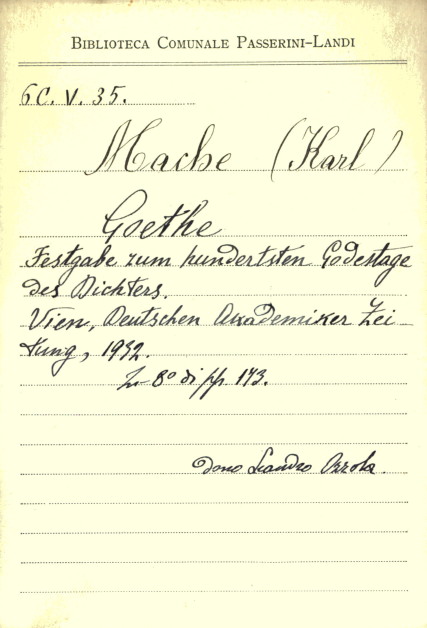 BIBLIOTECA COMUNALE PASSERINI-LANDI
6C. V. 35.
Mache (Karl)
Goethe
Festgabe zum hundertsten Todestage
des Dichters.
Vien, Deutschen Akademiker Zei-
tung, 1932.
In 8° di pp. 173.
dono Leandro Ozzola.